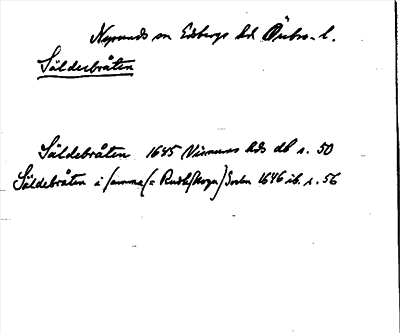 Nysunds sn Edsbergs hd Örebro l.
Sälderbråten
Säldebråten 1685 Visnums hds db s. 50
Säldebråten i samma (= Rudskoga) Socken 1686 ib. s. 56